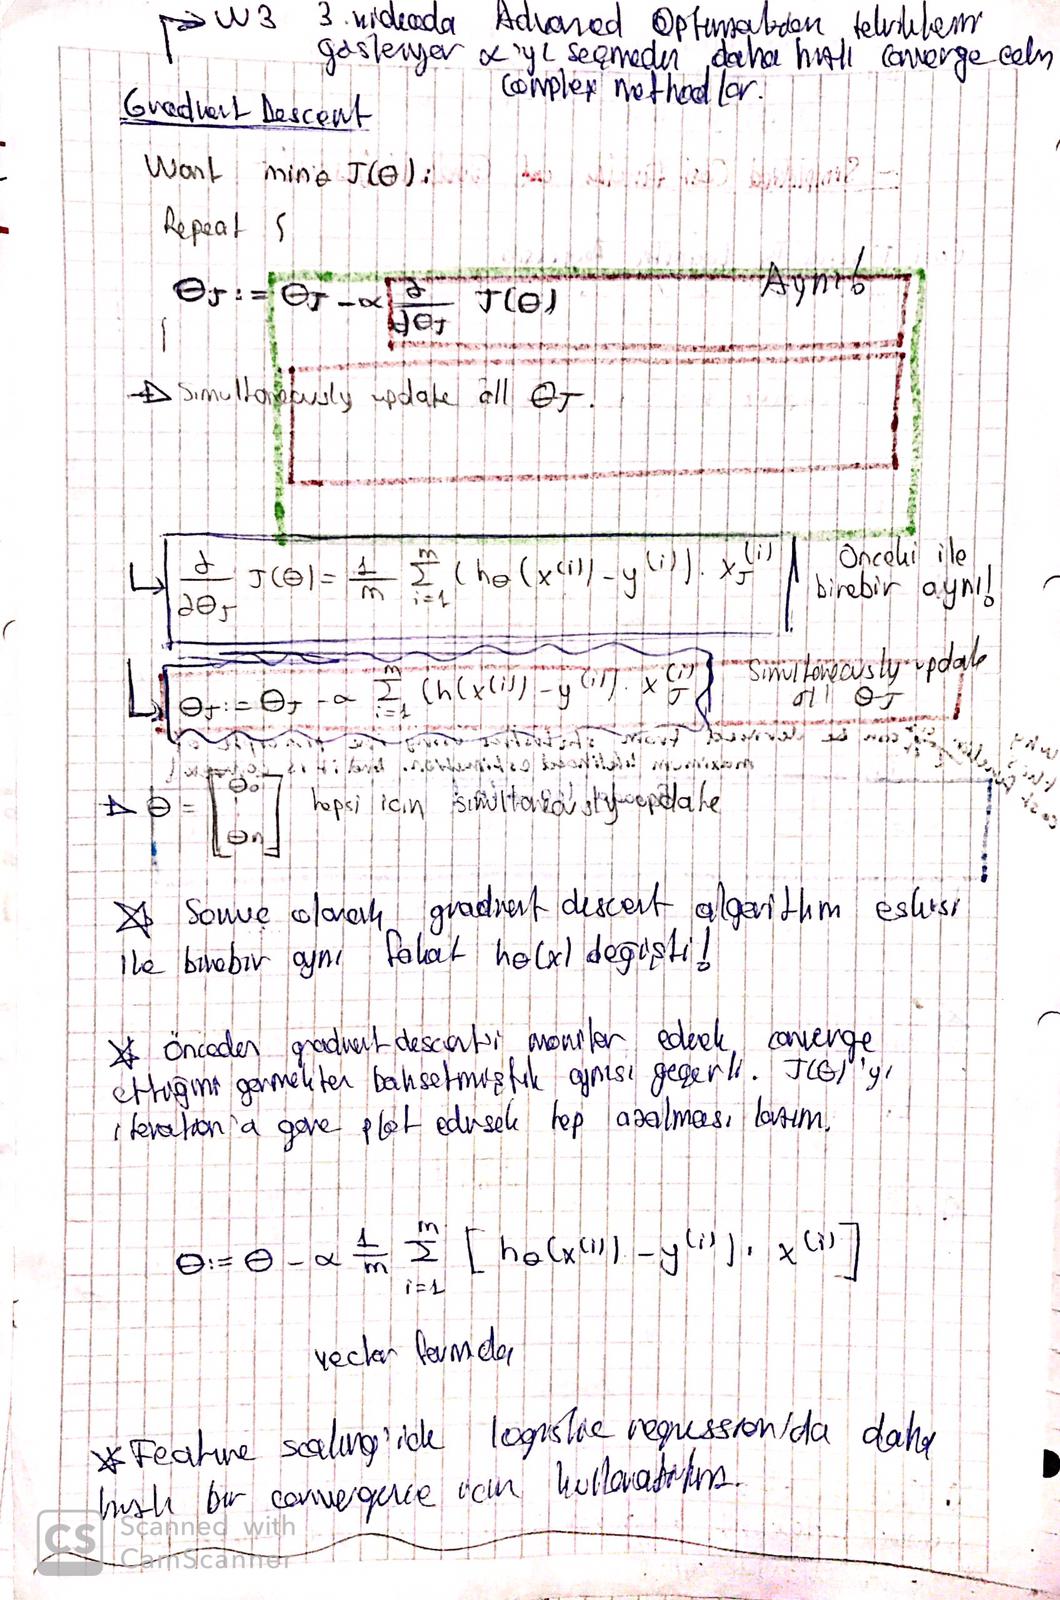 → W3 3. videoda Advanced Optimization teknikleri
gösteriyor α'yı seçmeden daha hızlı converge eden
complex methodlar.
Gradient Descent
Want minθ J(θ):
Repeat {
θJ := θJ - α ∂/∂θJ J(θ) Aynı!
}
→ Simultaneously update all θJ.
∂/∂θJ J(θ) = 1/m Σ_{i=1}^{m} (hθ(x^(i)) - y^(i)). xJ^(i) Önceki ile
birebir aynı!
θJ := θJ - α Σ_{i=1}^{m} (h(x^(i)) - y^(i)). xJ^(i) Simultaneously update
all θJ
→ θ = [θ0 ⋮ θn] hepsi icin simultaneously update
☆ Sonuç olarak gradient descent algorithm eskisi
ile birebir aynı fakat hθ(x) değişti!
☆ Önceden gradient descent'i monitor ederek converge
ettiğini görmekten bahsetmiştik aynısı geçerli. J(θ)'yı
iteration'a göre plot edersek hep azalması lazım.
θ := θ - α 1/m Σ_{i=1}^{m} [hθ(x^(i)) - y^(i)). x^(i)]
vector formda
☆ Feature scaling'ide logistic regression'da daha
hızlı bir convergence icin kullanabiliriz.
CS Scanned with
CamScanner